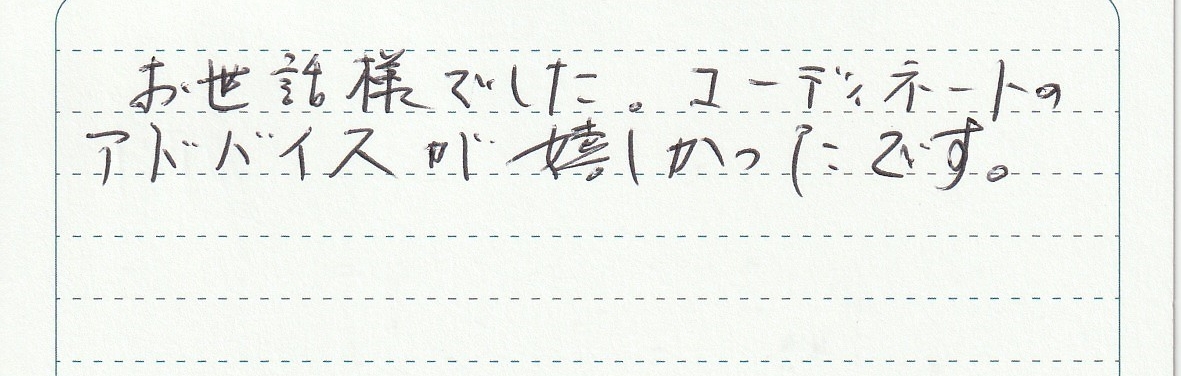 お世話様でした。コーディネートの
アドバイスが嬉しかったです。